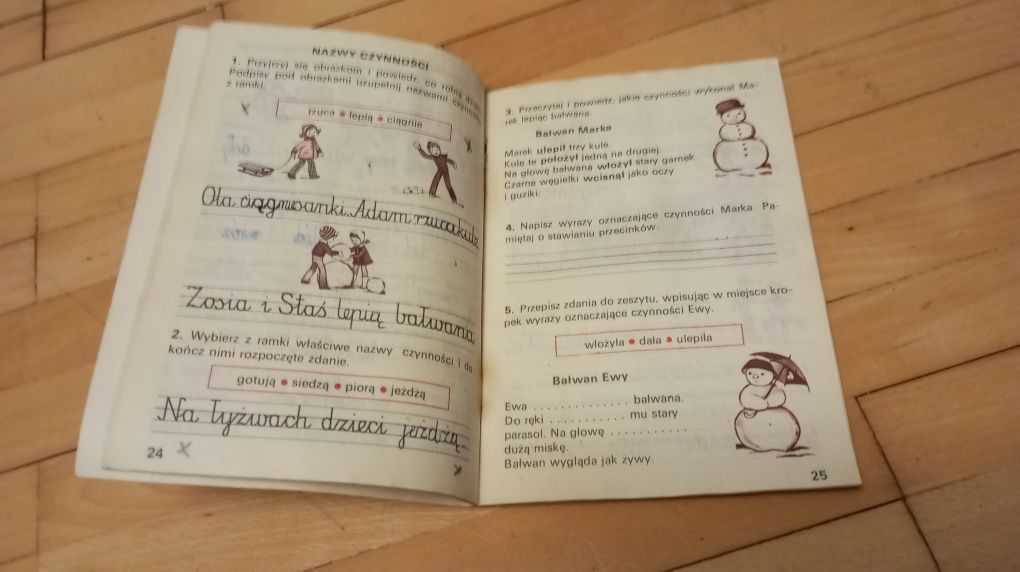 NAZWY CZYNNOŚCI
1. Przyjrzyj się obrazkom i powiedz, co robią
Podpisy pod obrazkami uzupełnij nazwami
z ramki.
rzuca • lepią • ciągnie
Ola ciągnie sanki. Adam rzuca kulę
Zosia i Staś lepią bałwana.
2. Wybierz z ramki właściwe nazwy czynności i do-
kończ nimi rozpoczęte zdanie.
gotują • siedzą • piorą • jeżdżą
Na łyżwach dzieci jeżdżą
24
3. Przeczytaj i powiedz, jakie czynności wykonał Ma-
rek lepiąc bałwana.
Bałwan Marka
Marek ulepił trzy kule.
Kule te położył jedną na drugiej.
Na głowę bałwana włożył stary garnek.
Czarne węgielki wcisnął jako oczy
i guziki.
4. Napisz wyrazy oznaczające czynności Marka. Pa-
miętaj o stawianiu przecinków.
5. Przepisz zdania do zeszytu, wpisując w miejsce kro-
pek wyrazy oznaczające czynności Ewy.
włożyła • dała • ulepiła
Bałwan Ewy
Ewa . . . . . . . . . . . . . . bałwana.
Do ręki . . . . . . . . . . mu stary
parasol. Na głowę . . . . . . . . . . .
dużą miskę.
Bałwan wygląda jak żywy.
25